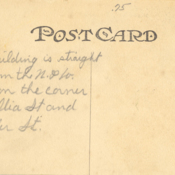 25
POST CARD
uilding is straight
om the N.P.
om the corner
lia St and
er St.